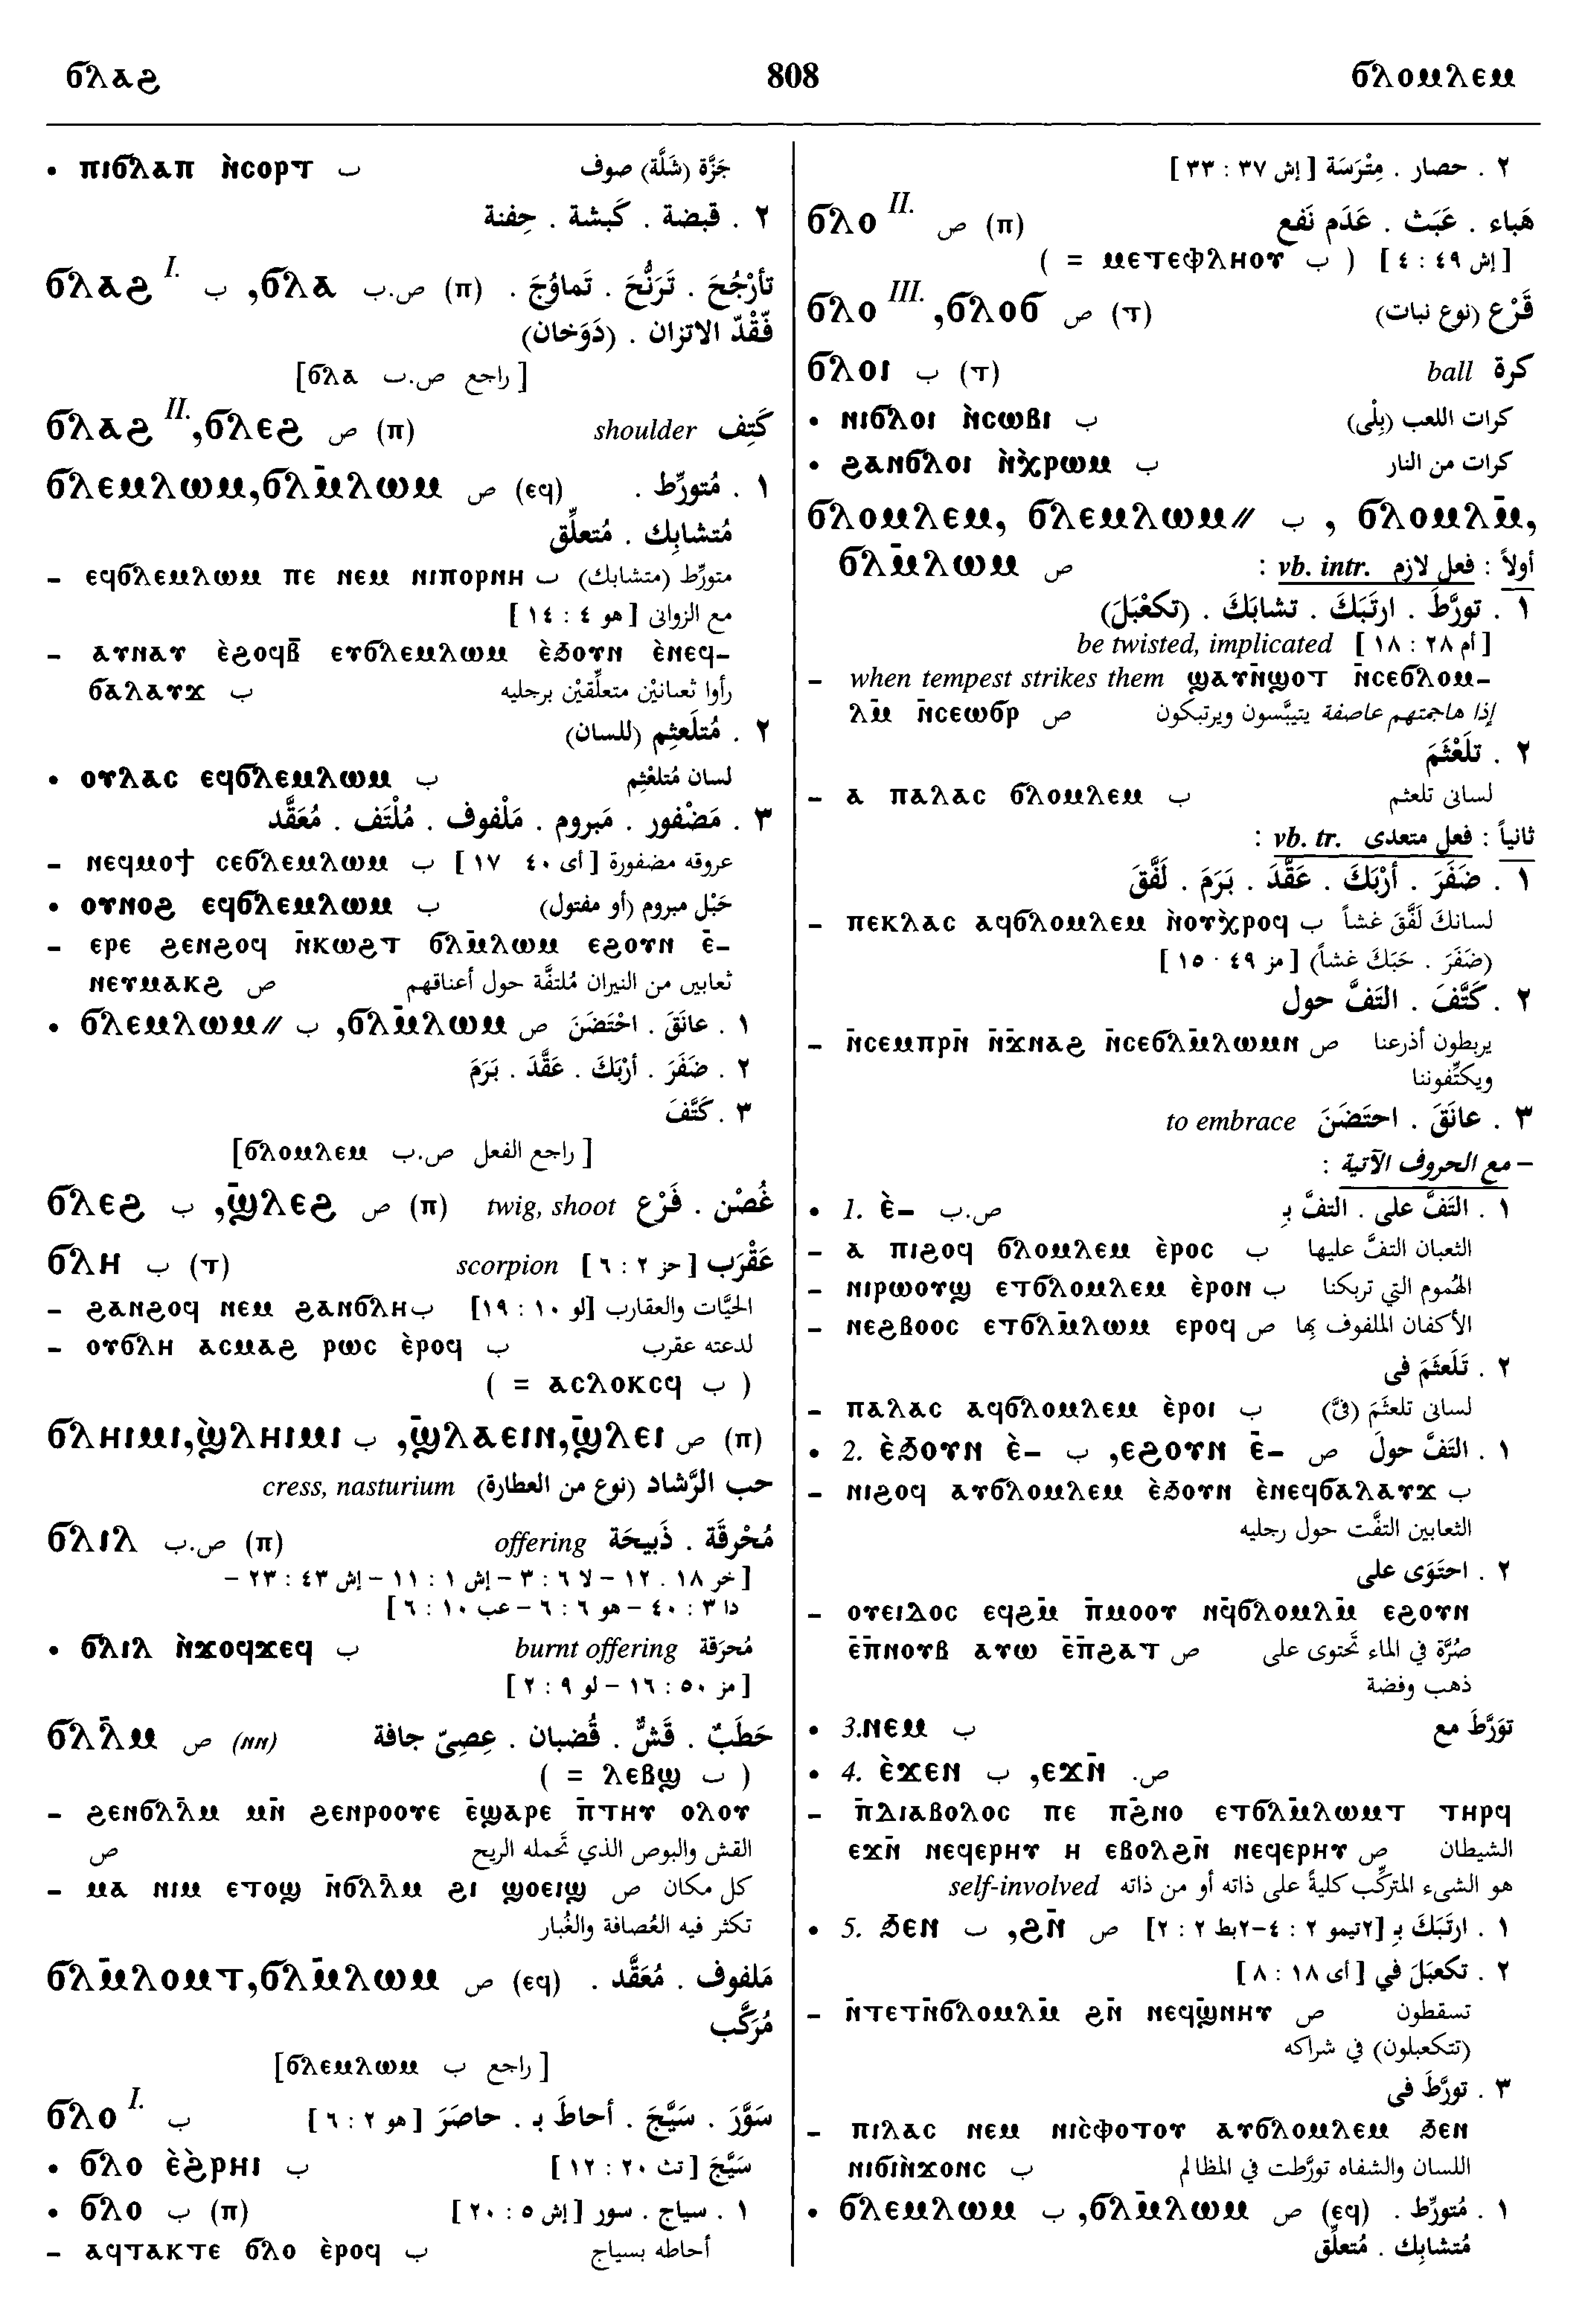 ϭⲗⲁϩ 808 ϭⲗⲟⲙⲗⲉⲙ
• ⲡⲓϭⲗⲁⲡ ⲛ̀ⲥⲟⲣⲧ ب جَزَّة (شَلَّة) صوف
٢ . قبضة . كَبشة . حِفنة
ϭⲗⲁϩ I. ب ,ϭⲗⲁ ص.ب (ⲡ) تأَرْجُحَ . تَرَنُّحَ . تَماوُجَ .
فَقْدّ الاتزان . (دَوَخان)
[ϭⲗⲁ راجع ص.ب ]
ϭⲗⲁϩ II.,ϭⲗⲉϩ ص (ⲡ) shoulder كَتِف
ϭⲗⲉⲙⲗⲱⲙ,ϭⲗⲙ̄ⲗⲱⲙ ص (ⲉϥ) ١ . مُتورِّط .
مُتشابِك . مُتعلِّق
– ⲉϥϭⲗⲉⲙⲗⲱⲙ ⲡⲉ ⲛⲉⲙ ⲛⲓⲡⲟⲣⲛⲏ ب متورِّط (متشابك)
مع الزوانى [ هو ٤ : ١٤ ]
– ⲁⲩⲛⲁⲩ ⲉ̀ϩⲟϥⲃ̄ ⲉⲩϭⲗⲉⲙⲗⲱⲙ ⲉ̀ϧⲟⲩⲛ ⲉ̀ⲛⲉϥ-
ϭⲁⲗⲁⲩϫ ب رأوا ثعبانيْن متعلِّقيْن برجليه
٢ . مُتلَعثِم (للسان)
• ⲟⲩⲗⲁⲥ ⲉϥϭⲗⲉⲙⲗⲱⲙ ب لسان مُتلعْثِم
٣ . مَضْفور . مَبروم . مَلْفوف . مُلْتَف . مُعَقَّد
– ⲛⲉϥⲙⲟϯ ⲥⲉϭⲗⲉⲙⲗⲱⲙ ب عروقه مضفورة [ أى ٤٠ ١٧ ]
• ⲟⲩⲛⲟϩ ⲉϥϭⲗⲉⲙⲗⲱⲙ ب حَبْل مبروم (أو مفتول)
– ⲉⲣⲉ ϩⲉⲛϩⲟϥ ⲛ̄ⲕⲱϩⲧ ϭⲗⲙ̄ⲗⲱⲙ ⲉϩⲟⲩⲛ ⲉ̄-
ⲛⲉⲩⲙⲁⲕϩ ص ثعابين من النيران مُلتفَّة حول أعناقهم
• ϭⲗⲉⲙⲗⲱⲙ// ب ,ϭⲗⲙ̄ⲗⲱⲙ ص ١ . عانَقَ . احْتَضَنَ
٢ . ضَفَرَ . أرْبَكَ . عَقَّدَ . بَرَمَ
٣ . كَتَّفَ
[ϭⲗⲟⲙⲗⲉⲙ راجع الفعل ص.ب ]
ϭⲗⲉϩ ب ,ϣ̄ⲗⲉϩ ص (ⲡ) twig, shoot غُصْن . فَرْع
ϭⲗⲏ ب (ⲧ) scorpion عَقْرَب [ حز ٢ : ٦ ]
– ϩⲁⲛϩⲟϥ ⲛⲉⲙ ϩⲁⲛϭⲗⲏ ب الحيَّات والعقارب [لو ١٠ : ١٩]
– ⲟⲩϭⲗⲏ ⲁⲥⲙⲁϩ ⲣⲱⲥ ⲉ̀ⲣⲟϥ ب لدعته عقرب
( = ⲁⲥⲗⲟⲕⲥϥ ب )
ϭⲗⲏⲓⲙⲓ,ϣ̀ⲗⲏⲓⲙⲓ ب ,ϣ̄ⲗⲁⲉⲓⲛ,ϣ̄ⲗⲉⲓ ص (ⲡ)
cress, nasturium حب الرَّشاد (نوع من العطارة)
ϭⲗⲓⲗ ص.ب (ⲡ) offering مُحْرقَة . ذَبيحَة
[ خر ١٨ . ١٢ – لا ٦ : ٣ – إش ١ : ١١ – إش ٤٣ : ٢٣ –
دا ٣ : ٤٠ – هو ٦ : ٦ – عب ١٠ : ٦ ]
• ϭⲗⲓⲗ ⲛ̀ϫⲟϥϫⲉϥ ب burnt offering مُحرَقة
[ مز ٥٠ : ١٦ – لو ٩ : ٢ ]
ϭⲗⲗ̄ⲙ ص (nn) حَطَبٌ . قَشٌّ . قُضبان . عِصِىّ جافة
( = ⲗⲉⲃϣ ب )
– ϩⲉⲛϭⲗⲗ̄ⲙ ⲙⲛ̄ ϩⲉⲛⲣⲟⲟⲩⲉ ⲉ̄ϣⲁⲣⲉ ⲡ̄ⲧⲏⲩ ⲟⲗⲟⲩ
ص القش والبوص الذي تَحمله الريح
– ⲙⲁ ⲛⲓⲙ ⲉⲧⲟϣ ⲛ̄ϭⲗⲗ̄ⲙ ϩⲓ ϣⲟⲉⲓϣ ص كل مكان
تكثر فيه العُصافة والغُبار
ϭⲗⲙ̄ⲗⲟⲙⲧ,ϭⲗⲙ̄ⲗⲱⲙ ص (ⲉϥ) مَلفوف . مُعَقَّد .
مُرَكَّب
[ϭⲗⲉⲙⲗⲱⲙ راجع ب ]
ϭⲗⲟ I. ب سَوَّرَ . سَيَّجَ . أحاطَ بـ . حاصَرَ [ هو ٢ : ٦ ]
• ϭⲗⲟ ⲉ̀ϩ̀ⲣⲏⲓ ب سَيَّجَ [ تث ٢٠ : ١٢ ]
• ϭⲗⲟ ب (ⲡ) ١ . سياج . سور [ إش ٥ : ٢٠ ]
– ⲁϥⲧⲁⲕⲧⲉ ϭⲗⲟ ⲉ̀ⲣⲟϥ ب أحاطه بسياج
٢ . حصار . مِتْرَسَة [ إش ٣٧ : ٣٣ ]
ϭⲗⲟ II. ص (ⲡ) هَباء . عَبَث . عَدَم نَفع
[ إش ٤٩ : ٤ ] ( = ⲙⲉⲧⲉⲫⲗⲏⲟⲩ ب )
ϭⲗⲟ III.,ϭⲗⲟϭ ص (ⲧ) قَرْع (نوع نبات)
ϭⲗⲟⲓ ب (ⲧ) ball كرة
• ⲛⲓϭⲗⲟⲓ ⲛ̀ⲥⲱⲃⲓ ب كرات اللعب (بِلْى)
• ϩⲁⲛϭⲗⲟⲓ ⲛ̀ⲭ̀ⲣⲱⲙ ب كرات من النار
ϭⲗⲟⲙⲗⲉⲙ, ϭⲗⲉⲙⲗⲱⲙ// ب , ϭⲗⲟⲙⲗⲙ̄,
ϭⲗⲙ̄ⲗⲱⲙ ص أولاً : فعل لازم vb. intr. :
١ . تورَّطَ . ارتَبَكَ . تشابَكَ . (تكعْبَلَ)
be twisted, implicated [ أم ٢٨ : ١٨ ]
– when tempest strikes them ϣⲁⲩⲛ̄ϣⲟⲧ ⲛ̄ⲥⲉϭⲗⲟⲙ-
ⲗⲙ̄ ⲛ̄ⲥⲉⲱϭⲣ ص إذا هاجمتهم عاصفة يتيبَّسون ويرتبكون
٢ . تلَعْثَمَ
– ⲁ ⲡⲁⲗⲁⲥ ϭⲗⲟⲙⲗⲉⲙ ب لسانى تلعثم
ثانياً : فعل متعدى vb. tr. :
١ . ضَفَرَ . أرْبَكَ . عَقَّدَ . بَرَمَ . لَفَّقَ
– ⲡⲉⲕⲗⲁⲥ ⲁϥϭⲗⲟⲙⲗⲉⲙ ⲛ̀ⲟⲩⲭ̀ⲣⲟϥ ب لسانكَ لَفَّقَ غشاً
(ضَفَرَ . حَبَكَ غشاً) [ مز ٤٩ ٠ ١٥ ]
٢ . كَتَّفَ . التَفَّ حول
– ⲛ̄ⲥⲉⲙⲡⲣⲛ̄ ⲛ̄ϫⲛⲁϩ ⲛ̄ⲥⲉϭⲗⲙ̄ⲗⲱⲙⲛ ص يربطون أذرعنا
ويكتِّفوننا
٣ . عانَقَ . احتَضَنَ to embrace
– مع الحروف الآتية :
• 1. ⲉ̀– ص.ب ١ . التَفَّ على . التفَّ بـِ
– ⲁ ⲡⲓϩⲟϥ ϭⲗⲟⲙⲗⲉⲙ ⲉ̀ⲣⲟⲥ ب الثعبان التفَّ عليها
– ⲛⲓⲣⲱⲟⲩϣ ⲉⲧϭⲗⲟⲙⲗⲉⲙ ⲉ̀ⲣⲟⲛ ب الهُموم التي تربكنا
– ⲛⲉϩⲃⲟⲟⲥ ⲉⲧϭⲗⲙ̄ⲗⲱⲙ ⲉⲣⲟϥ ص الأكفان الملفوف بِها
٢ . تَلَعثَمَ فى
– ⲡⲁⲗⲁⲥ ⲁϥϭⲗⲟⲙⲗⲉⲙ ⲉ̀ⲣⲟⲓ ب لسانى تلعثَمَ (فىَّ)
• 2. ⲉ̀ϧⲟⲩⲛ ⲉ̀– ب ,ⲉϩⲟⲩⲛ ⲉ̄– ص ١ . التَفَّ حولَ
– ⲛⲓϩⲟϥ ⲁⲩϭⲗⲟⲙⲗⲉⲙ ⲉ̀ϧⲟⲩⲛ ⲉ̀ⲛⲉϥϭⲁⲗⲁⲩϫ ب
الثعابين التفَّت حول رجليه
٢ . احتَوَى على
– ⲟⲩⲉⲓⲇⲟⲥ ⲉϥϩⲙ̄ ⲡ̄ⲙⲟⲟⲩ ⲛϥ̄ϭⲗⲟⲙⲗⲙ̄ ⲉϩⲟⲩⲛ
ⲉ̄ⲡ̄ⲛⲟⲩⲃ ⲁⲩⲱ ⲉ̄ⲡ̄ϩⲁⲧ ص صُرَّة في الماء تَحتوى على
ذهب وفضة
• 3. ⲛⲉⲙ ب توَرَّطَ مع
• 4. ⲉ̀ϫⲉⲛ ب ,ⲉϫⲛ̄ ص.
– ⲡ̄ⲇⲓⲁⲃⲟⲗⲟⲥ ⲡⲉ ⲡϩ̄ⲛⲟ ⲉⲧϭⲗⲙ̄ⲗⲱⲙⲧ ⲧⲏⲣϥ
ⲉϫⲛ̄ ⲛⲉϥⲉⲣⲏⲩ ⲏ ⲉⲃⲟⲗϩⲛ̄ ⲛⲉϥⲉⲣⲏⲩ ص الشيطان
self-involved هو الشىء المتركِّب كليةً على ذاته أو من ذاته
• 5. ϧⲉⲛ ب ,ϩⲛ̄ ص ١ . ارتَبَكَ بـِ [٢تيمو ٢ : ٤–٢بط ٢ : ٢]
٢ . تكعبَلَ في [ أى ١٨ : ٨ ]
– ⲛ̄ⲧⲉⲧⲛ̄ϭⲗⲟⲙⲗⲙ̄ ϩⲛ̄ ⲛⲉϥϣ̄ⲛⲏⲩ ص تسقطون
(تتكعبلون) في شراكه
٣ . تورَّطَ فى
– ⲡⲓⲗⲁⲥ ⲛⲉⲙ ⲛⲓⲥ̀ⲫⲟⲧⲟⲩ ⲁⲩϭⲗⲟⲙⲗⲉⲙ ϧⲉⲛ
ⲛⲓϭⲓⲛ̀ϫⲟⲛⲥ ب اللسان والشفاه تورَّطت في المظالم
• ϭⲗⲉⲙⲗⲱⲙ ب ,ϭⲗⲙ̄ⲗⲱⲙ ص (ⲉϥ) ١ . مُتورِّط .
مُتشابِك . مُتعلِّق